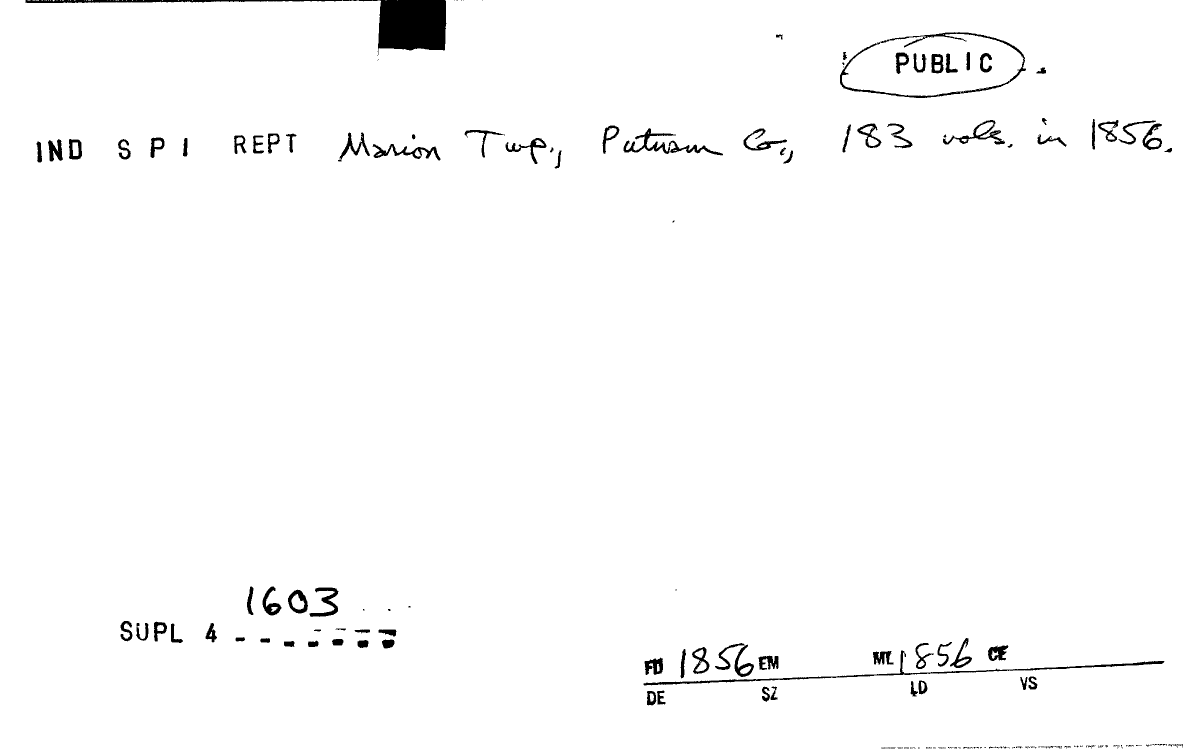 PUBLIC
IND S P I REPT Marion Twp., Putnam Co., 183 vols. in 1856.
1603
SUPL 4
FD 1856 EM ML 1856 CE
DE SZ LD VS